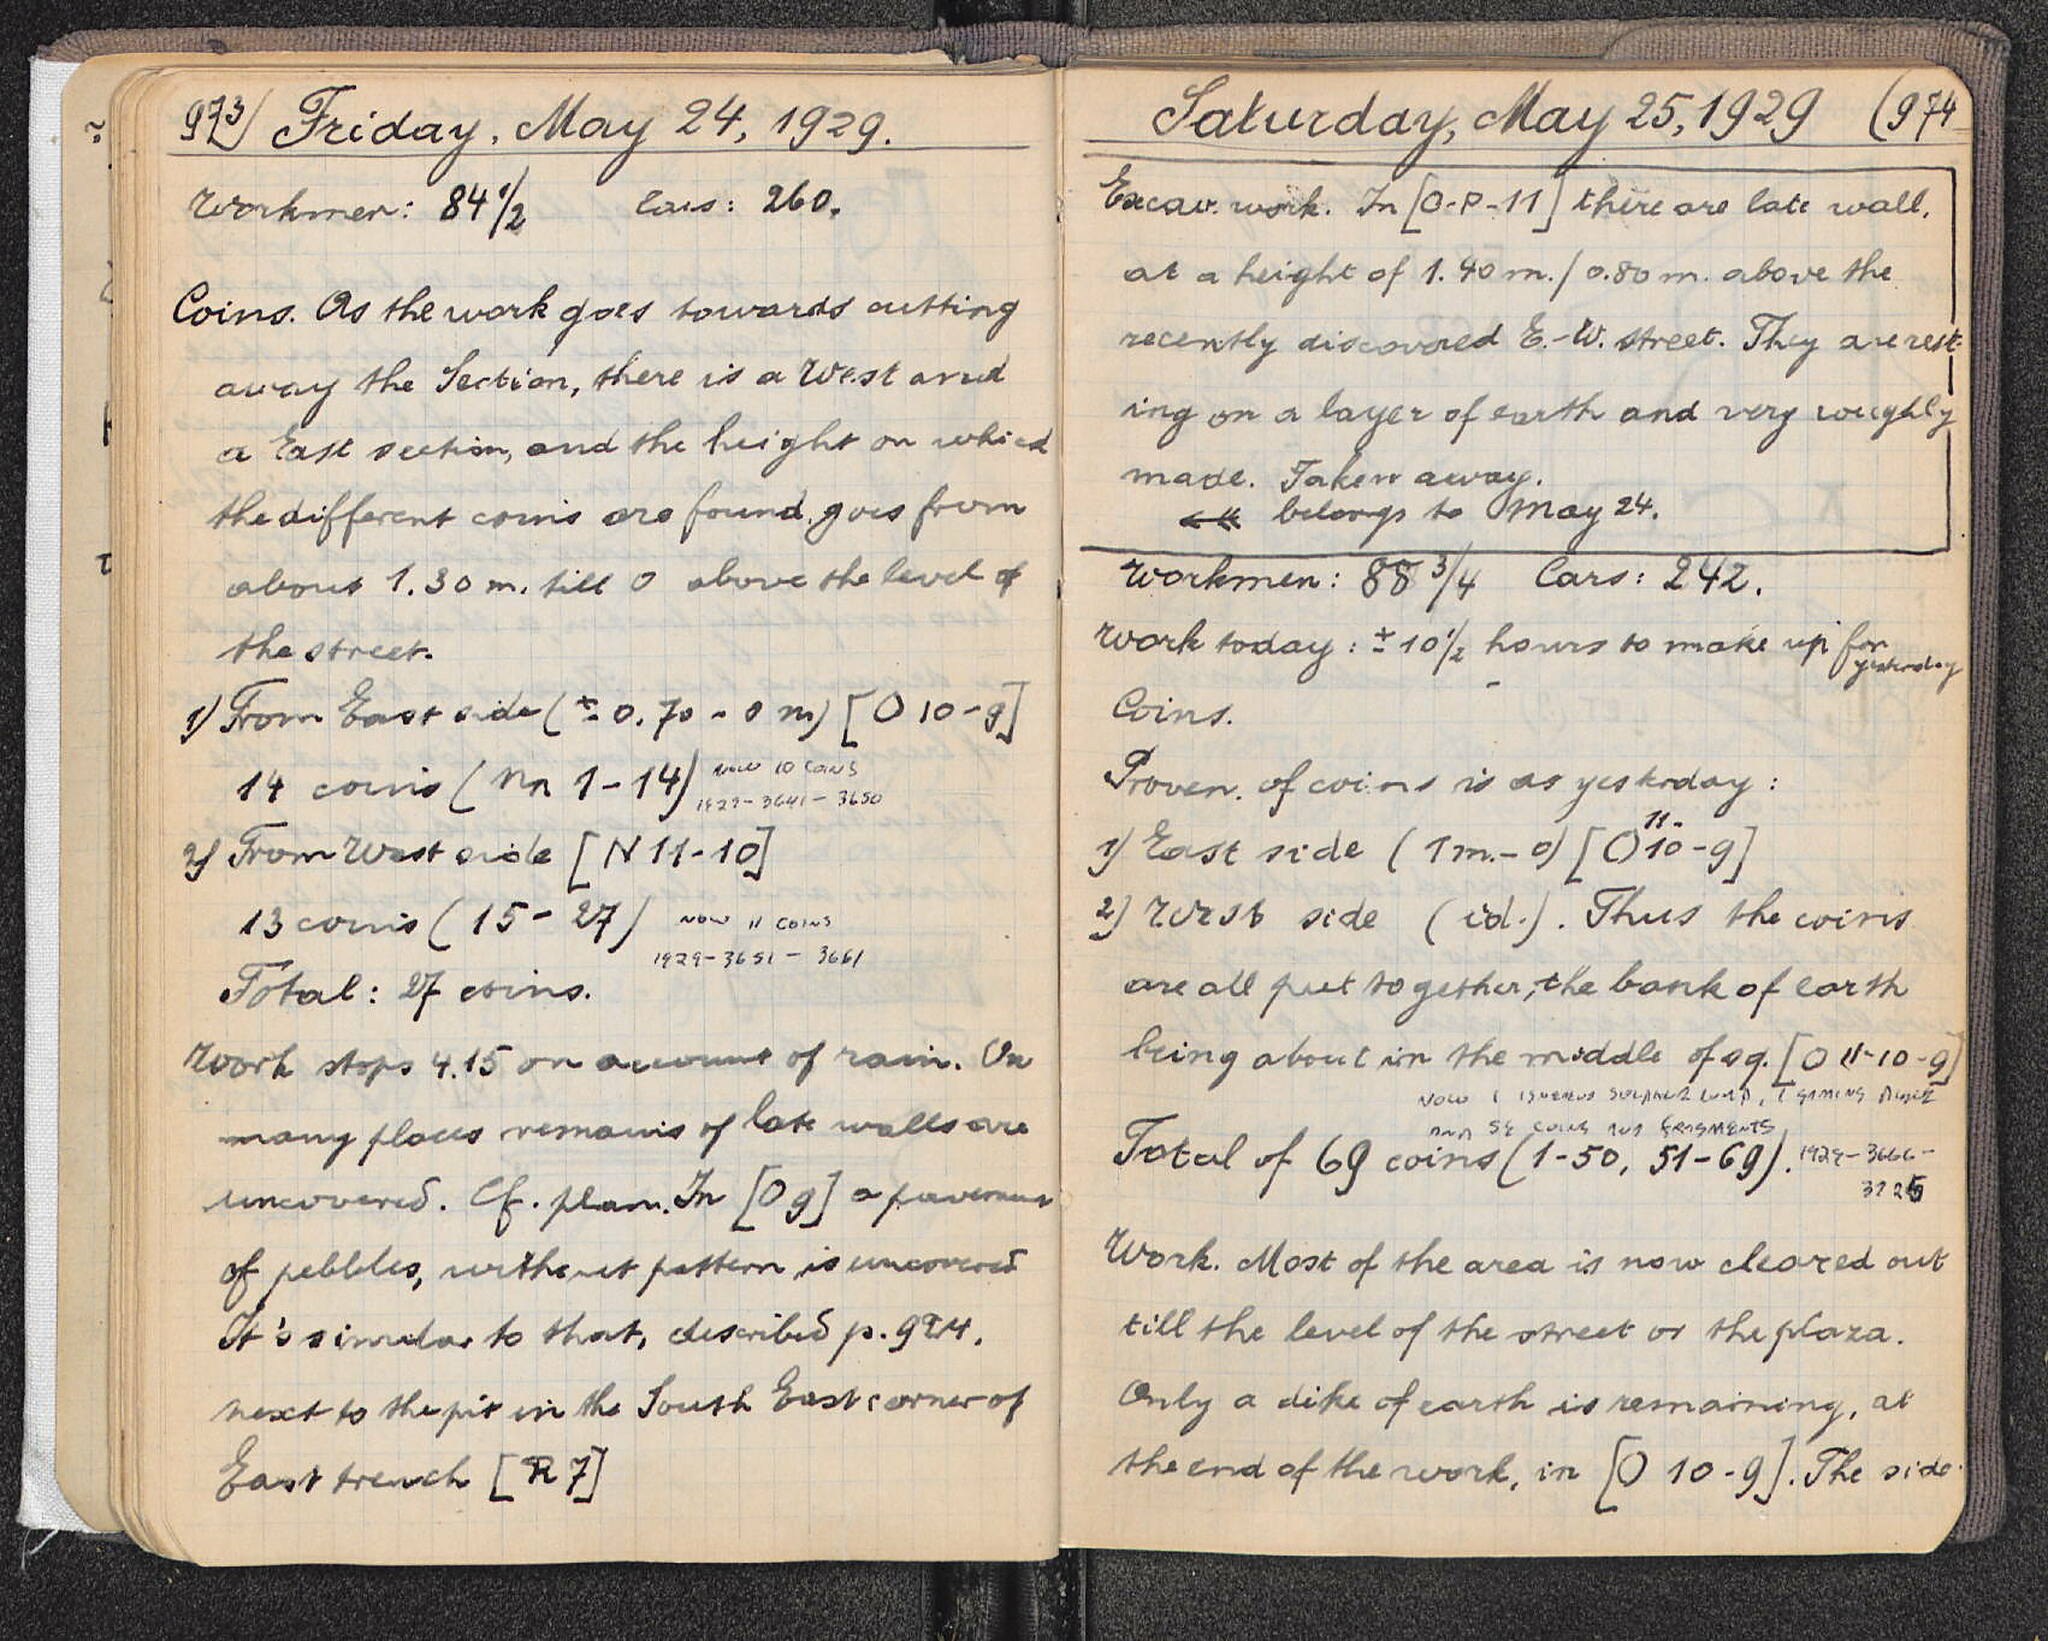 973) Friday, May 24, 1929.
Workmen: 84 1/2 Cars: 260.
Coins. As the work goes towards cutting
away the Section, there is a West and
a East section, and the height on which
the different coins are found, goes from
about 1.30 m. till 0 above the level of
the street.
1) From East side (± 0.70 - 0 m) [O 10-9]
14 coins (Nn 1-14) NOW 10 COINS
1929-3641-3650
2) From West side [N 11-10]
13 coins (15-27) NOW 11 COINS
1929-3651-3661
Total: 27 coins.
Work stops 4.15 on account of rain. On
many places remains of late walls are
uncovered. Cf. plan. In [O 9] a pavement
of pebbles, without pattern is uncovered
It's similar to that, described p.
next to the pit in the South East corner of
East trench [R 7]
Saturday, May 25, 1929 (974
Excav. work. In [O-P-11] there are late wall,
at a height of 1.40 m./0.80 m. above the
recently discovered E.-W. street. They are rest-
ing on a layer of earth and very roughly
made. Taken away.
belongs to May 24.
Workmen: 88 3/4 Cars: 242.
Work today: ± 10 1/2 hours to make up for
yesterday
Coins.
Proven. of coins is as yesterday:
11-
1) East side (1 m.-0) [O 10-9]
2) West side (id.). Thus the coins
are all put together, the bank of earth
being about in the middle of sq. [O 11-10-9]
NOW 1 SULPHUR LUMP, 1 GAMING PIECE
AND COINS AND FRAGMENTS
Total of 69 coins (1-50, 51-69). 1929-3666-
3725
Work. Most of the area is now cleared out
till the level of the street or the plaza.
Only a dike of earth is remaining, at
the end of the work, in [O 10-9]. The side